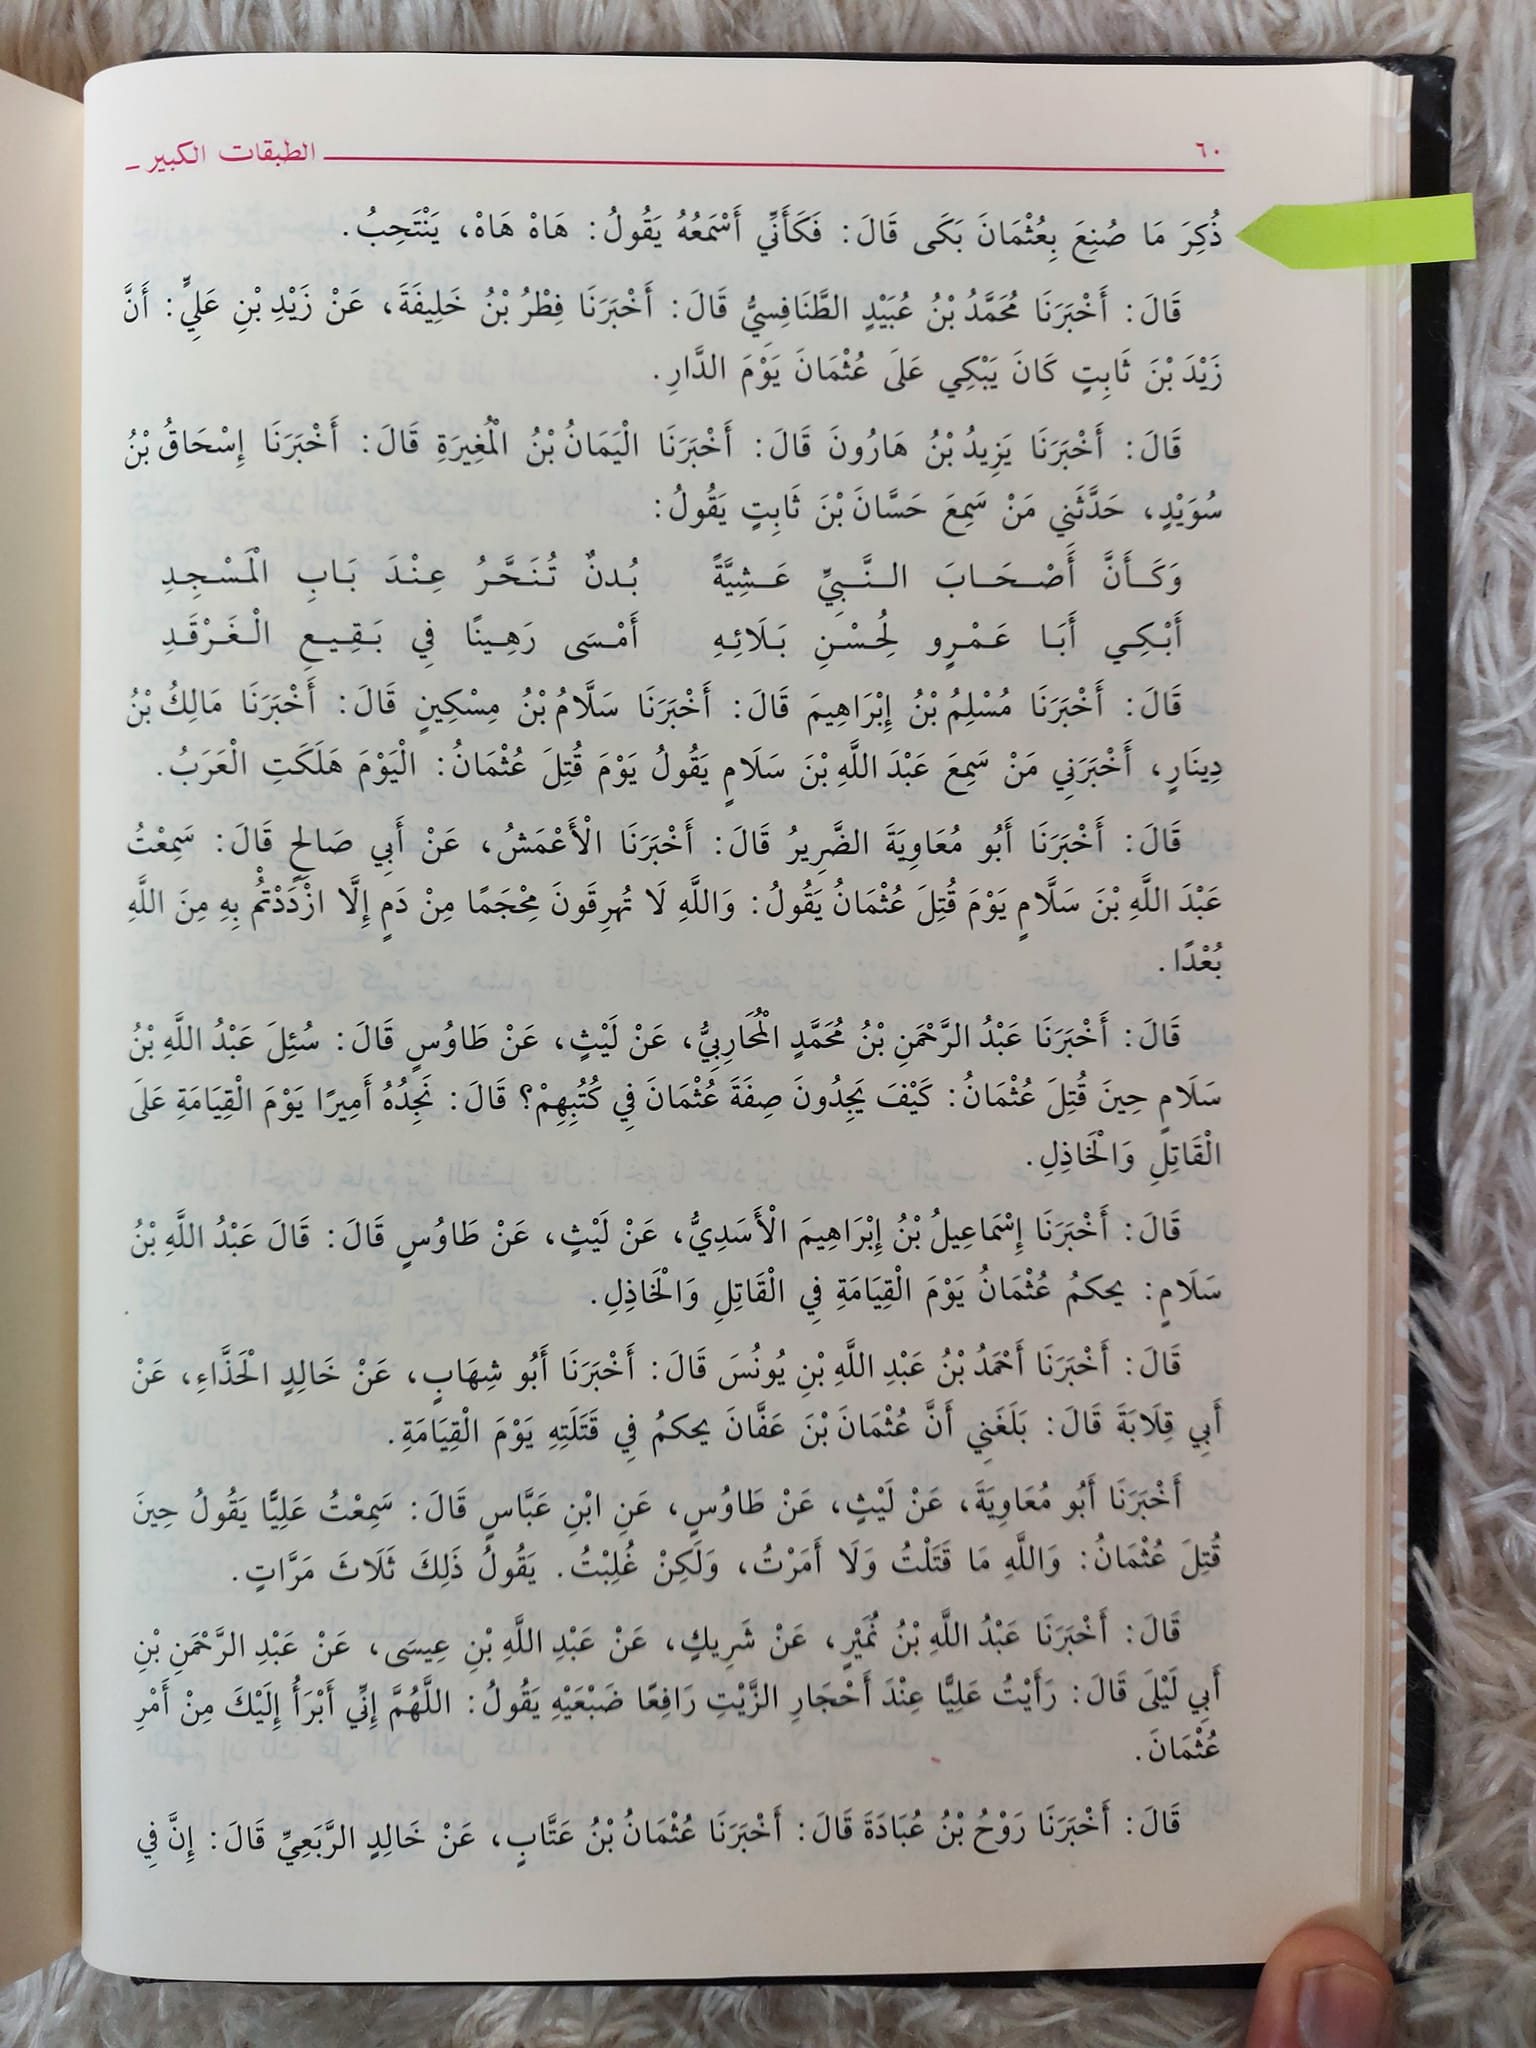 ٦٠ الطبقات الكبير
ذُكِرَ مَا صُنِعَ بِعُثْمَانَ بَكَى قَالَ: فَكَأَنِّي أَسْمَعُهُ يَقُولُ: هَاهْ هَاهْ، يَنْتَحِبُ.
قَالَ: أَخْبَرَنَا مُحَمَّدُ بْنُ عُبَيْدٍ الطَّنَافِسِيُّ قَالَ: أَخْبَرَنَا فِطْرُ بْنُ خَلِيفَةَ، عَنْ زَيْدِ بْنِ عَلِيٍّ: أَنَّ
زَيْدَ بْنَ ثَابِتٍ كَانَ يَبْكِي عَلَى عُثْمَانَ يَوْمَ الدَّارِ.
قَالَ: أَخْبَرَنَا يَزِيدُ بْنُ هَارُونَ قَالَ: أَخْبَرَنَا الْيَمَانُ بْنُ الْمُغِيرَةِ قَالَ: أَخْبَرَنَا إِسْحَاقُ بْنُ
سُوَيْدٍ، حَدَّثَنِي مَنْ سَمِعَ حَسَّانَ بْنَ ثَابِتٍ يَقُولُ:
وَكَأَنَّ أَصْحَابَ النَّبِيِّ عَشِيَّةً بُدنٌ تُنَحَّرُ عِنْدَ بَابِ الْمَسْجِدِ
أَبْكِي أَبَا عَمْرٍو لِحُسْنِ بَلَائِهِ أَمْسَى رَهِينًا فِي بَقِيعِ الْغَرْقَدِ
قَالَ: أَخْبَرَنَا مُسْلِمُ بْنُ إِبْرَاهِيمَ قَالَ: أَخْبَرَنَا سَلَّامُ بْنُ مِسْكِينٍ قَالَ: أَخْبَرَنَا مَالِكُ بْنُ
دِينَارٍ، أَخْبَرَنِي مَنْ سَمِعَ عَبْدَ اللَّهِ بْنَ سَلَامٍ يَقُولُ يَوْمَ قُتِلَ عُثْمَانُ: الْيَوْمَ هَلَكَتِ الْعَرَبُ.
قَالَ: أَخْبَرَنَا أَبُو مُعَاوِيَةَ الضَّرِيرُ قَالَ: أَخْبَرَنَا الْأَعْمَشُ، عَنْ أَبِي صَالِحٍ قَالَ: سَمِعْتُ
عَبْدَ اللَّهِ بْنَ سَلَّامٍ يَوْمَ قُتِلَ عُثْمَانُ يَقُولُ: وَاللَّهِ لَا تُهرِقَونَ مِحْجَمًا مِنْ دَمٍ إِلَّا ازْدَدْتُمْ بِهِ مِنَ اللَّهِ
بُعْدًا.
قَالَ: أَخْبَرَنَا عَبْدُ الرَّحْمَنِ بْنُ مُحَمَّدٍ الْمُحَارِبِيُّ، عَنْ لَيْثٍ، عَنْ طَاوُسٍ قَالَ: سُئِلَ عَبْدُ اللَّهِ بْنُ
سَلَامٍ حِينَ قُتِلَ عُثْمَانُ: كَيْفَ يَجِدُونَ صِفَةَ عُثْمَانَ فِي كُتُبِهِمْ؟ قَالَ: نَجِدُهُ أَمِيرًا يَوْمَ الْقِيَامَةِ عَلَى
الْقَاتِلِ وَالْخَاذِلِ.
قَالَ: أَخْبَرَنَا إِسْمَاعِيلُ بْنُ إِبْرَاهِيمَ الْأَسَدِيُّ، عَنْ لَيْثٍ، عَنْ طَاوُسٍ قَالَ: قَالَ عَبْدُ اللَّهِ بْنُ
سَلَامٍ: يحكمُ عُثْمَانُ يَوْمَ الْقِيَامَةِ فِي الْقَاتِلِ وَالْخَاذِلِ.
قَالَ: أَخْبَرَنَا أَحْمَدُ بْنُ عَبْدِ اللَّهِ بْنِ يُونُسَ قَالَ: أَخْبَرَنَا أَبُو شِهَابٍ، عَنْ خَالِدٍ الْحَذَّاءِ، عَنْ
أَبِي قِلَابَةَ قَالَ: بَلَغَنِي أَنَّ عُثْمَانَ بْنَ عَفَّانَ يحكمُ فِي قَتَلَتِهِ يَوْمَ الْقِيَامَةِ.
أَخْبَرَنَا أَبُو مُعَاوِيَةَ، عَنْ لَيْثٍ، عَنْ طَاوُسٍ، عَنِ ابْنِ عَبَّاسٍ قَالَ: سَمِعْتُ عَلِيًّا يَقُولُ حِينَ
قُتِلَ عُثْمَانُ: وَاللَّهِ مَا قَتَلْتُ وَلَا أَمَرْتُ، وَلَكِنْ غُلِبْتُ. يَقُولُ ذَلِكَ ثَلَاثَ مَرَّاتٍ.
قَالَ: أَخْبَرَنَا عَبْدُ اللَّهِ بْنُ نُمَيْرٍ، عَنْ شَرِيكٍ، عَنْ عَبْدِ اللَّهِ بْنِ عِيسَى، عَنْ عَبْدِ الرَّحْمَنِ بْنِ
أَبِي لَيْلَى قَالَ: رَأَيْتُ عَلِيًّا عِنْدَ أَحْجَارِ الزَّيْتِ رَافِعًا ضَبْعَيْهِ يَقُولُ: اللَّهُمَّ إِنِّي أَبْرَأُ إِلَيْكَ مِنْ أَمْرِ
عُثْمَانَ.
قَالَ: أَخْبَرَنَا رَوْحُ بْنُ عُبَادَةَ قَالَ: أَخْبَرَنَا عُثْمَانُ بْنُ عَتَّابٍ، عَنْ خَالِدٍ الرَّبَعِيِّ قَالَ: إِنَّ فِي